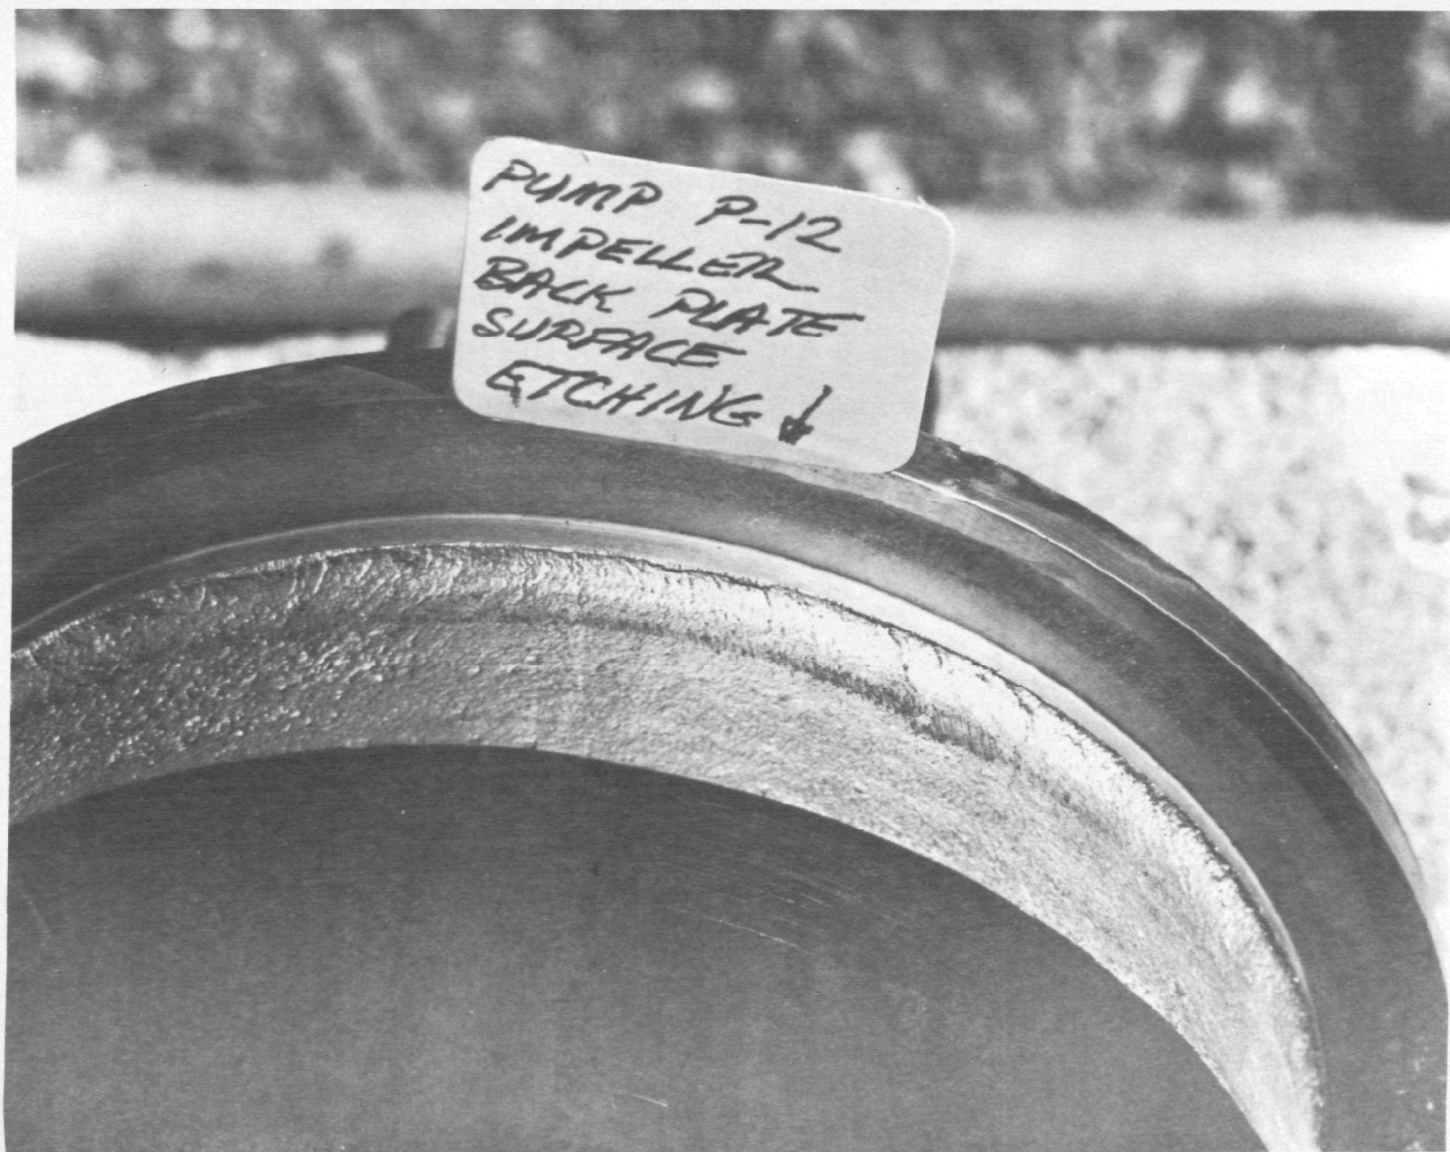 PUMP P-12
IMPELLER
BACK PLATE
SURFACE
ETCHING ↓